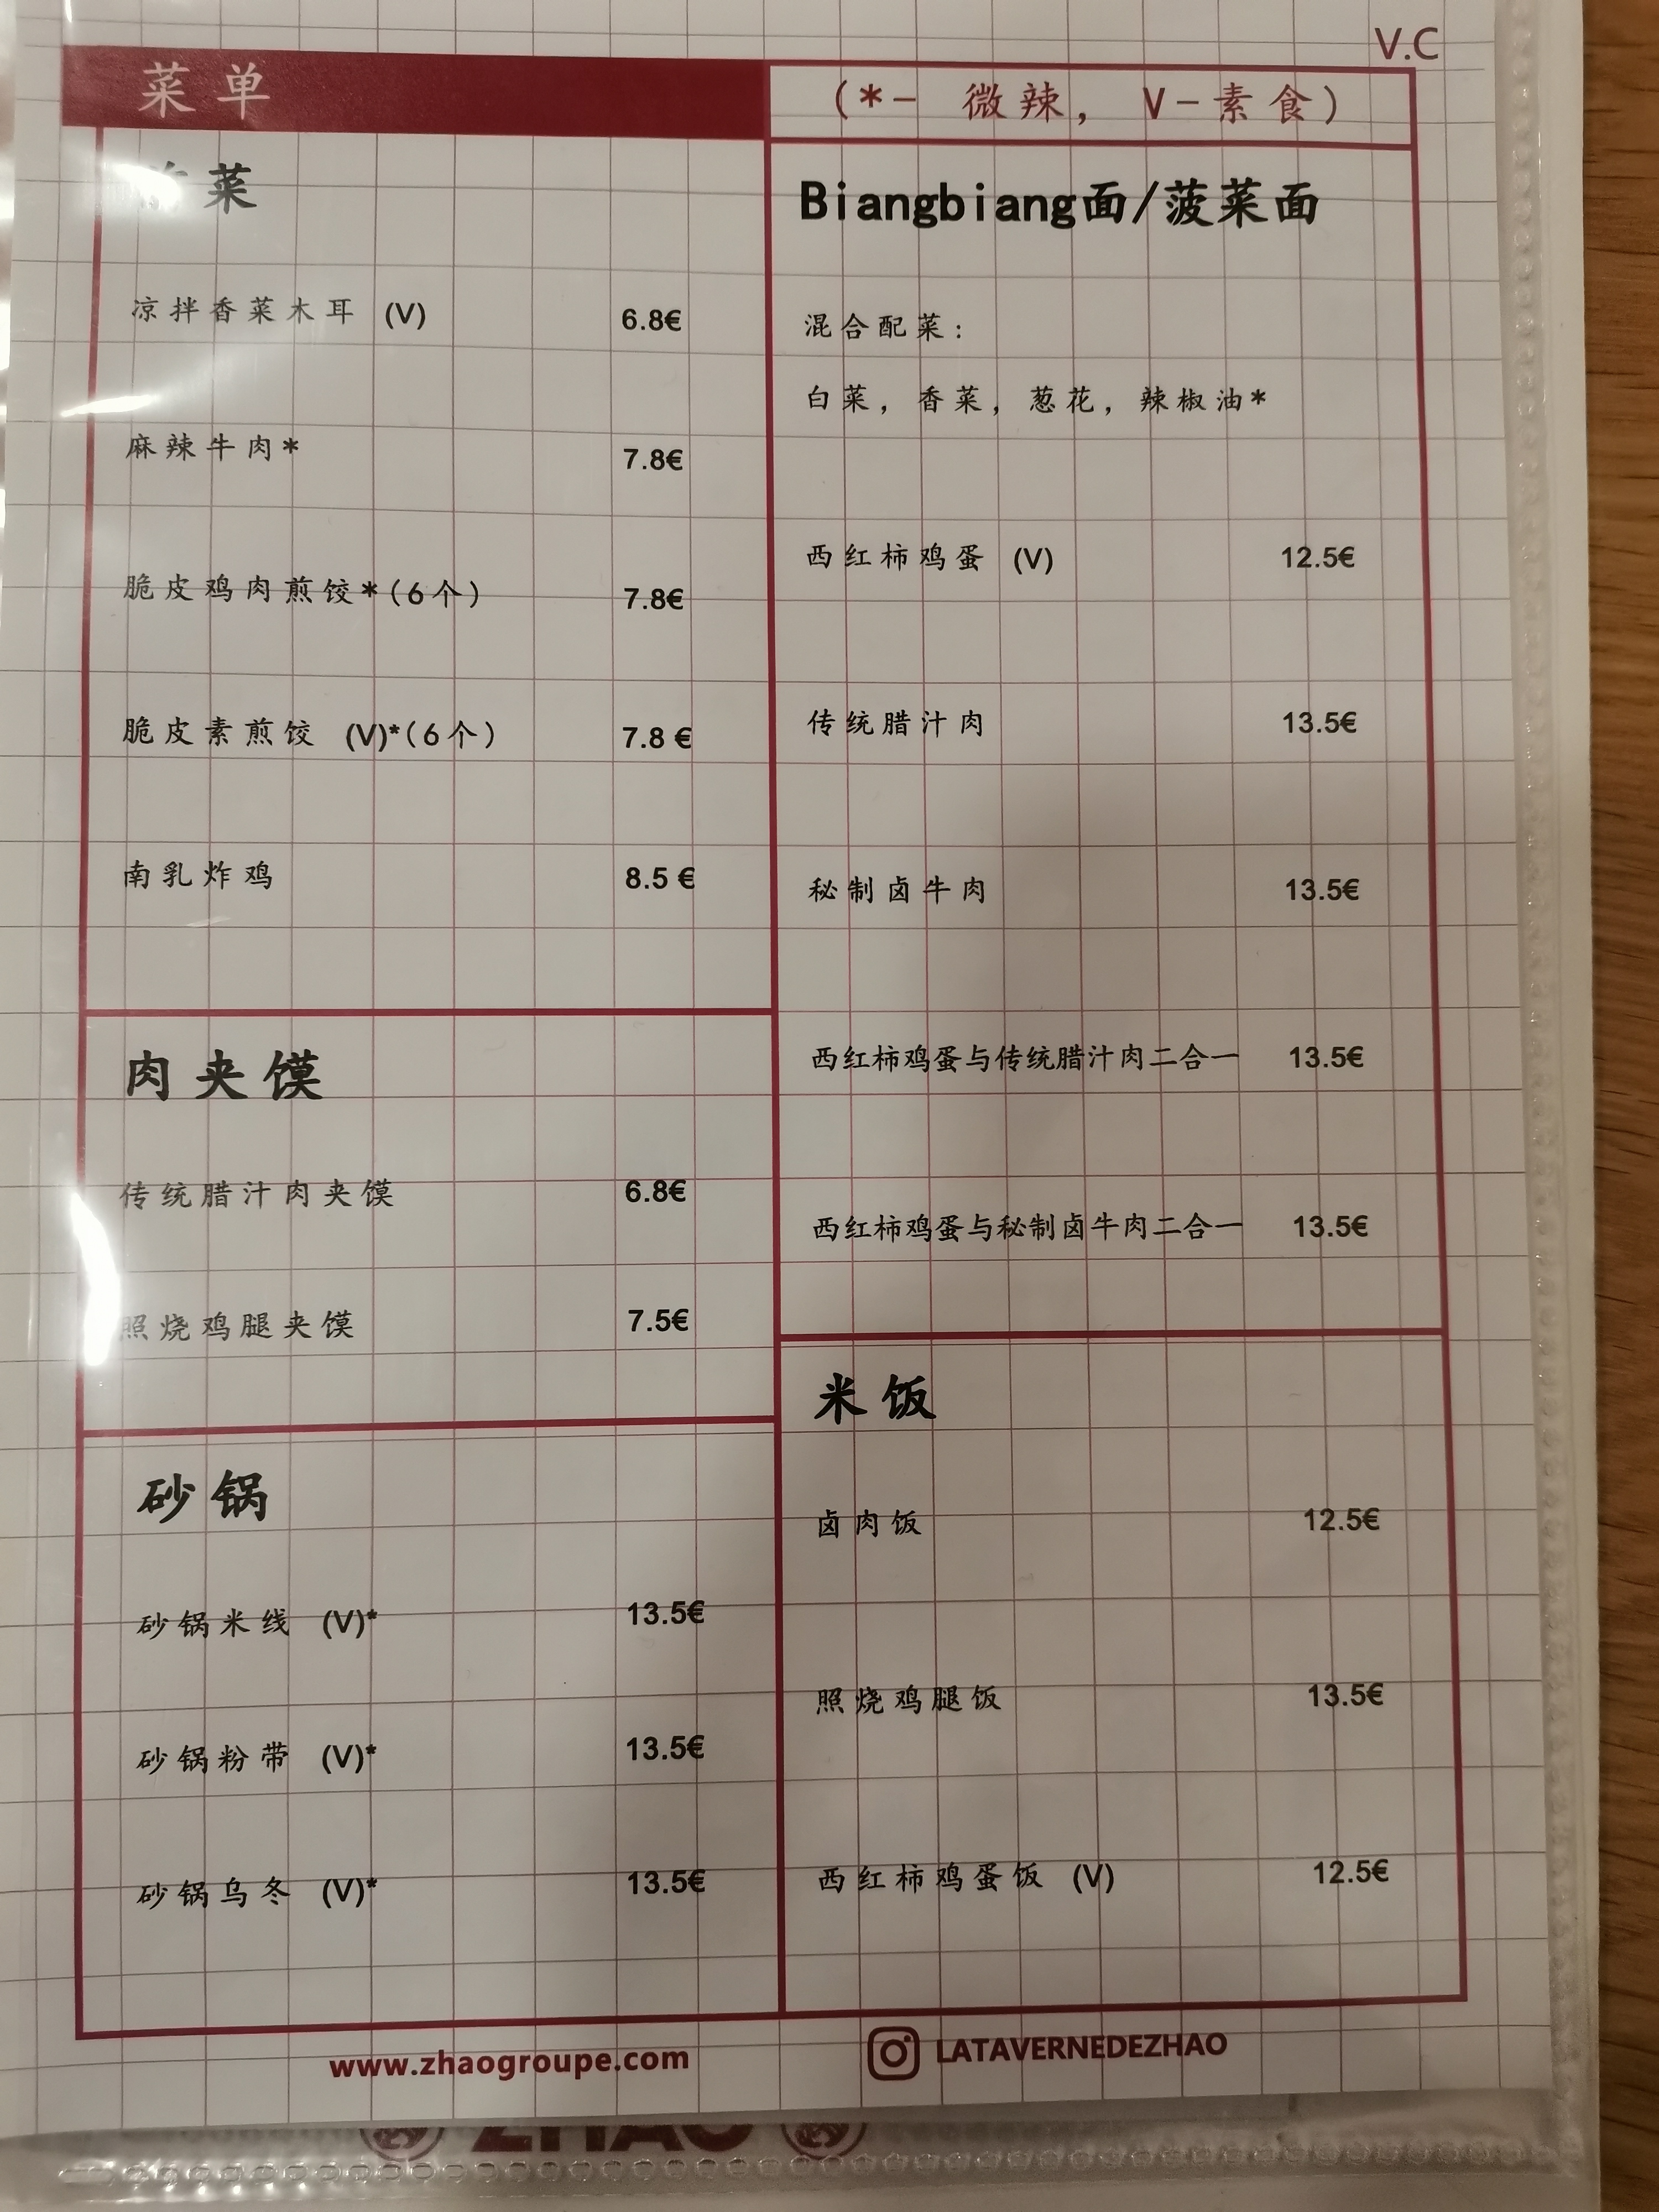 V.C
菜单
(*- 微辣, V-素食)
菜
凉拌香菜木耳 (V) 6.8€
麻辣牛肉* 7.8€
脆皮鸡肉煎饺*(6个) 7.8€
脆皮素煎饺 (V)*(6个) 7.8 €
南乳炸鸡 8.5 €
肉夹馍
传统腊汁肉夹馍 6.8€
照烧鸡腿夹馍 7.5€
砂锅
砂锅米线 (V)* 13.5€
砂锅粉带 (V)* 13.5€
砂锅乌冬 (V)* 13.5€
Biangbiang面/菠菜面
混合配菜:
白菜, 香菜, 葱花, 辣椒油*
西红柿鸡蛋 (V) 12.5€
传统腊汁肉 13.5€
秘制卤牛肉 13.5€
西红柿鸡蛋与传统腊汁肉二合一 13.5€
西红柿鸡蛋与秘制卤牛肉二合一 13.5€
米饭
卤肉饭 12.5€
照烧鸡腿饭 13.5€
西红柿鸡蛋饭 (V) 12.5€
www.zhaogroupe.com
LATAVERNEDEZHAO
ZHAO